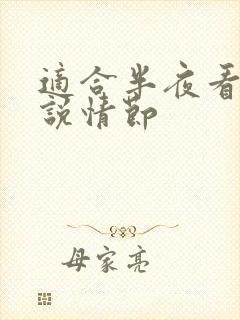 適合半夜看
說情節
母家亮